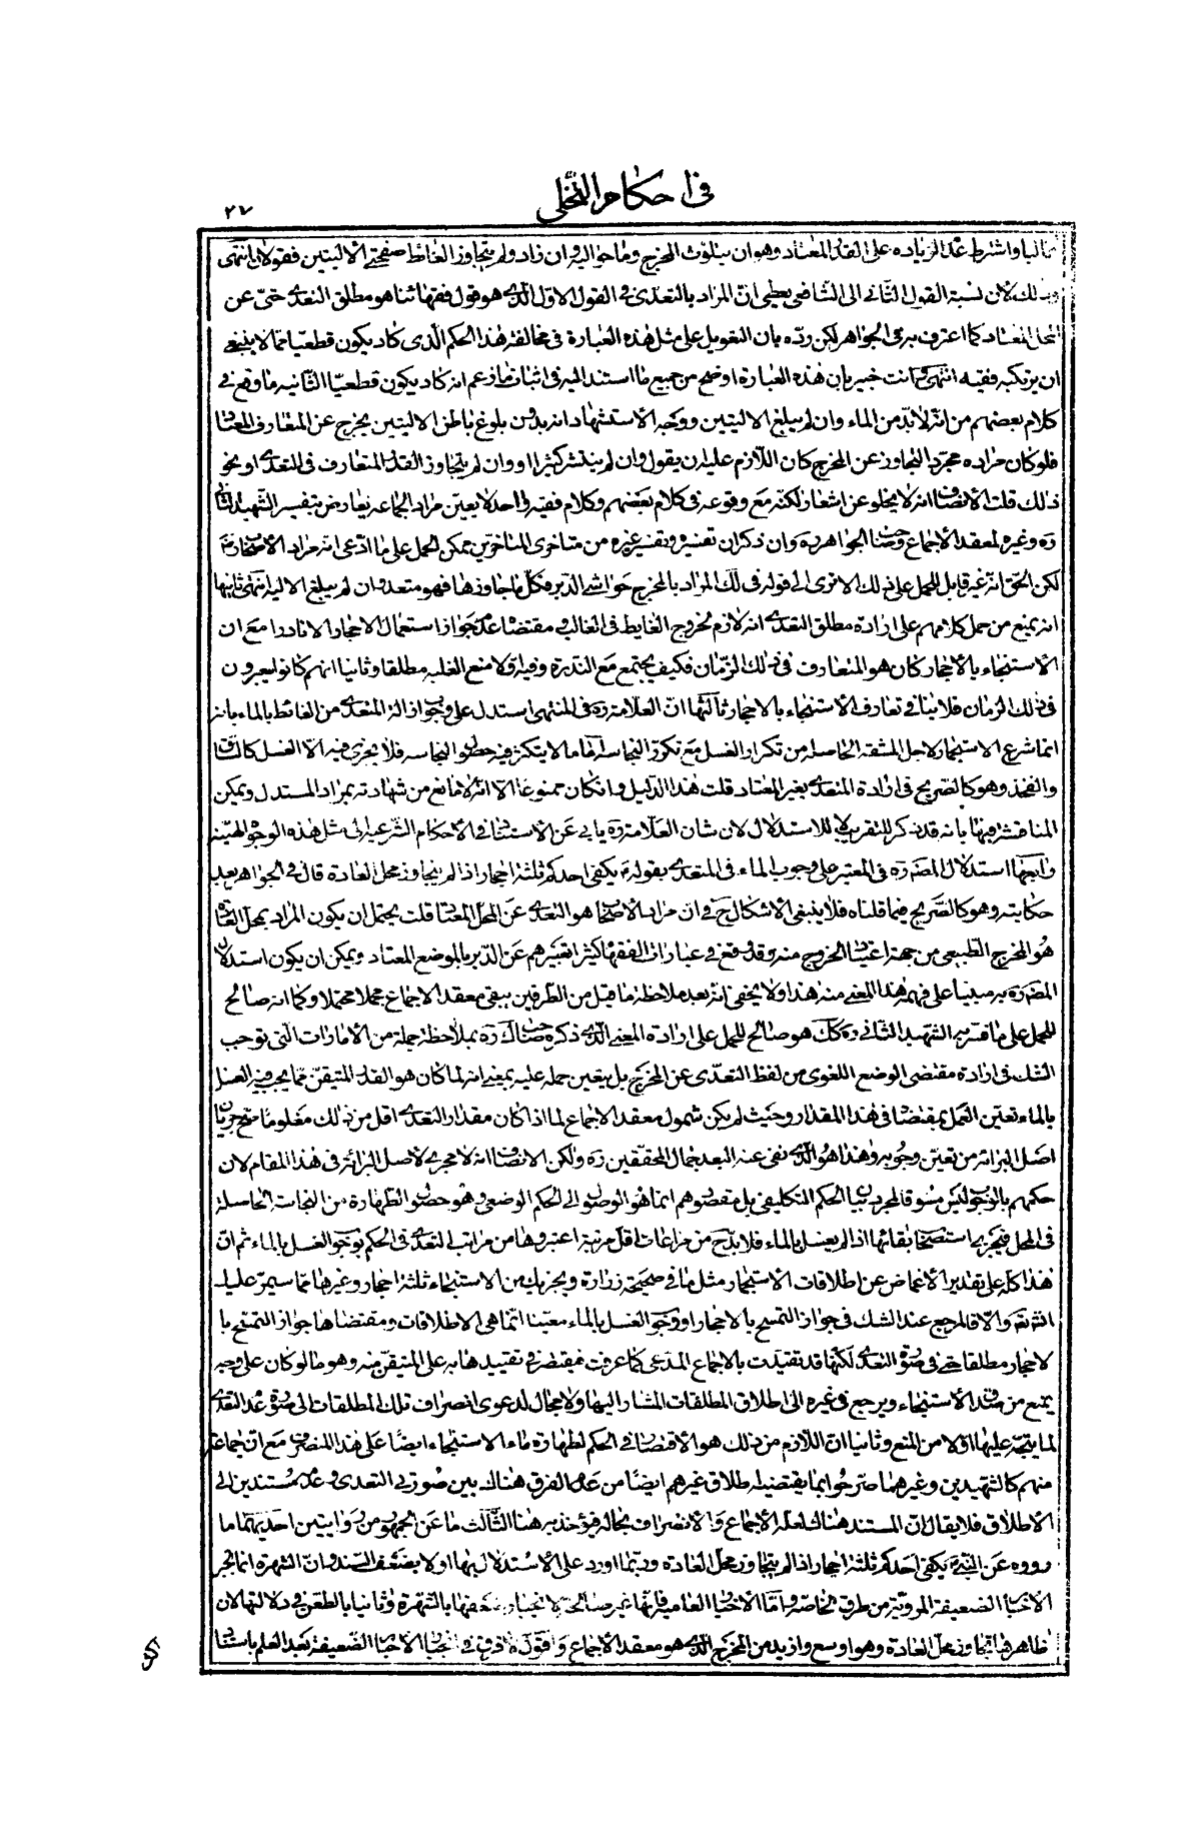 في احكام التخلي
٢٧
غالبا واشترط عدم الزياده على القدر المعتاد وهو ان يتلوث المخرج وما حواليه وان زاد ولم يتجاوز الغائط صفحتي الاليتين فقولان انتهى
وذلك لان نسبة القول الثاني الى الشافعي يعطي انّ المراد بالتعدّي في القول الاوّل الذي هو قول فقهائنا هو مطلق التعدي حتىّ عن
المحل المعتاد كما اعترف به في الجواهر لكن ردّه بان التعويل على مثل هذه العبارة في مخالفة هذا الحكم الّذي كاد يكون قطعيا ممّا لا ينبغي
ان يرتكبه فقيه انتهى وانت خبير بان هذه العبارة اوضح من جميع ما استند اليه في اثبات ما زعم انه كاد يكون قطعيّا الثّانيه ما وقع في
كلام بعضهم من انّه لا بدّ من الماء وان لم يبلغ الاليتين ووجه الاستشهاد انه بدون بلوغ باطن الاليتين يخرج عن المتعارف المعتاد
فلو كان مراده مجرّد التجاوز عن المخرج كان اللّازم عليه ان يقول وان لم ينتشر كثيرا او وان لم يتجاوز القدر المتعارف في التعدي او نحو
ذلك قلت الأنصاف انه لا يخلو عن اشعار لكنّه مع وقوعه في كلام بعضهم وكلام فقيه واحد لا يعيّن مراد الجماعه يعارض بتفسير الشّهيد الثاني
ره وغيره لمعقد الأجماع وصاحب الجواهر ره وان ذكر ان تفسيره وتفسير غيره من متاخري المتاخرين يمكن الحمل على ما ادّعى انه مراد الاصحاب
لكن الحقّ انّه غير قابل للحمل على ذلك الا ترى الى قوله في لك المراد بالمخرج حواشي الدبر فكلّ ما جاوزها فهو متعد وان لم يبلغ الاليه انتهى ثانيها
انه يمنع من حمل كلامهم على ارادة مطلق التعدي انه لازم لخروج الغايط في الغالب ومقتضاه عدم جواز استعمال الاحجار الا نادرا مع ان
الأستنجاء بالأحجار كان هو المتعارف في ذلك الزّمان فكيف يجتمع مع الندرة وفيه اولا منع الغلبه مطلقا وثانيا انهم كانوا يبعرون
في ذلك الزمان فلا ينافي تعارف الأستنجاء بالاحجار ثالثها انّ العلامة ره في المنتهى استدل على وجوب ازالة المتعدي من الغائط بالماء بانه
انما شرع الاستجمار لاجل المشقه الحاصله من تكرار الغسل مع تكرر النجاسة امّا ما لا يتكرر فيه حصول النجاسه فلا يجزى فيه الا الغسل كالساق
والفخذ وهو كالصّريح في ارادة المتعدي بغير المعتاد قلت هذا الدّليل وان كان ممنوعا الا انّه لا مانع من شهادته بمراد المستدل ويمكن
المناقشة فيها بانه قد ذكر للتقريب لا للاستدلال لان شان العلّامة ره يابى عن الاستناد في الأحكام الشرعيه الى مثل هذه الوجوه الهيّنه
رابعها استدلال المصنف ره في المعتبر على وجوب الماء في المتعدي بقوله ع يكفى احدكم ثلثة احجار اذا لم يتجاوز محل العادة قال في الجواهر بعد
حكايته وهو كالصّريح فيما قلناه فلا ينبغي الاشكال ح في ان مراد الاصحاب هو التعدي عن المحلّ المعتاد قلت يحتمل ان يكون المراد بمحل العادة
هو المخرج الطّبيعي من جهة اعتياد الخروج منه وقد وقع في عبارات الفقهاء كثيرا تعبيرهم عن الدّبر بالموضع المعتاد ويمكن ان يكون استدلال
المصنف ره به مبنيا على فهمه هذا المعنى منه هذا ولا يخفى انه بعد ملاحظة ما قيل من الطّرفين يبقى معقد الاجماع مجملا محتملا وكما انه صالح
للحمل على ما فسّر به الشهيد الثاني ره كك هو صالح للحمل على ارادة المعنى الذي ذكره صاحب ك ره بملاحظة جملة من الامارات الّتي توجب
الشك في ارادة مقتضى الوضع اللغوي من لفظ التعدّي عن المخرج بل يتعين حمله عليه بمعنى انه لما كان هو القدر المتيقن ممّا يجب فيه الغسل
بالماء تعيّن العمل بمقتضاه في هذا المقدار وحيث لم يكن شمول معقد الاجماع لما اذا كان مقدار التعدي اقل من ذلك معلوما صحّ جريان
اصل البرائه من تعيّن وجوبه وهذا هو الّذي نفى عنه البعد جمال المحققين ره ولكن الانصاف انه لا مجرى لأصل البرائة في هذا المقام لان
حكمهم بالوجوب ليس مسوقا لمجرد بيان الحكم التكليفي بل مقصودهم انما هو الوصول الى الحكم الوضعي وهو حصول الطّهارة من النجاسة الحاصلة
في المحل فيجرى استصحاب بقائها اذا لم يغسل بالماء فلا بدّ ح من مراعات اقل مرتبة اعتبروها من مراتب التعدي في الحكم بوجوب الغسل بالماء ثم انّ
هذا كلّه على تقدير الأغماض عن اطلاقات الاستجمار مثل ما في صحيحة زرارة ويجزيك من الاستنجاء ثلثة احجار وغيرها مما سيمرّ عليك
انش تع والّا فالمرجع عند الشك في جواز التمسح بالاحجار او وجوب الغسل بالماء معيّنا انّما هي الاطلاقات ومقتضاها جواز التمسّح با
لاحجار مطلقا حتى في صورة التعدي لكنّها قد تقيّدت بالاجماع المدّعى كما عرفت فيقتصر في تقييدها به على المتيقن منه وهو ما لو كان على وجه
يمنع من صدق الأستنجاء ويرجع في غيره الى اطلاق المطلقات المشار اليها ولا مجال لدعوى انصراف تلك المطلقات الى صورة عدم التعدي
لما يتجّه عليها اولا من المنع وثانيا انّ اللّازم من ذلك هو الأقتصار في الحكم لطهارة ماء الاستنجاء ايضًا على هذا المنصرف مع انّ جماعة
منهم كالشهيدين وغيرهما صرّحوا بما يقتضيه اطلاق غيرهم ايضًا من عدم الفرق هناك بين صورتي التعدي وعدمه مستندين الى
الاطلاق فلا يقال انّ المستند هناك لعله الأجماع والا نصراف بحاله فيؤخذ به هنا الثّالث ما عن الجمهور من روايتين احديهما ما
رووه عن النّبي ص يكفى احدكم ثلثة احجار اذا لم يتجاوز محل العادة وربّما اورد على الأستدلال بها اولا بضعف السّند وانّ الشهرة انما تجبر
الأخبار الضعيفة المرويّة من طرق الخاصّه وامّا الأخبار العاميه فانّها غير صالحة لانجبار ضعفها بالشّهرة وثانيا بالطّعن في دلالتها لان
ظاهرها تجاوز محل العادة وهو اوسع وازيد من المخرج الذي هو معقد الأجماع واقول لا فرق في انجبار الاخبار الضّعيفة بعد العلم باستناد